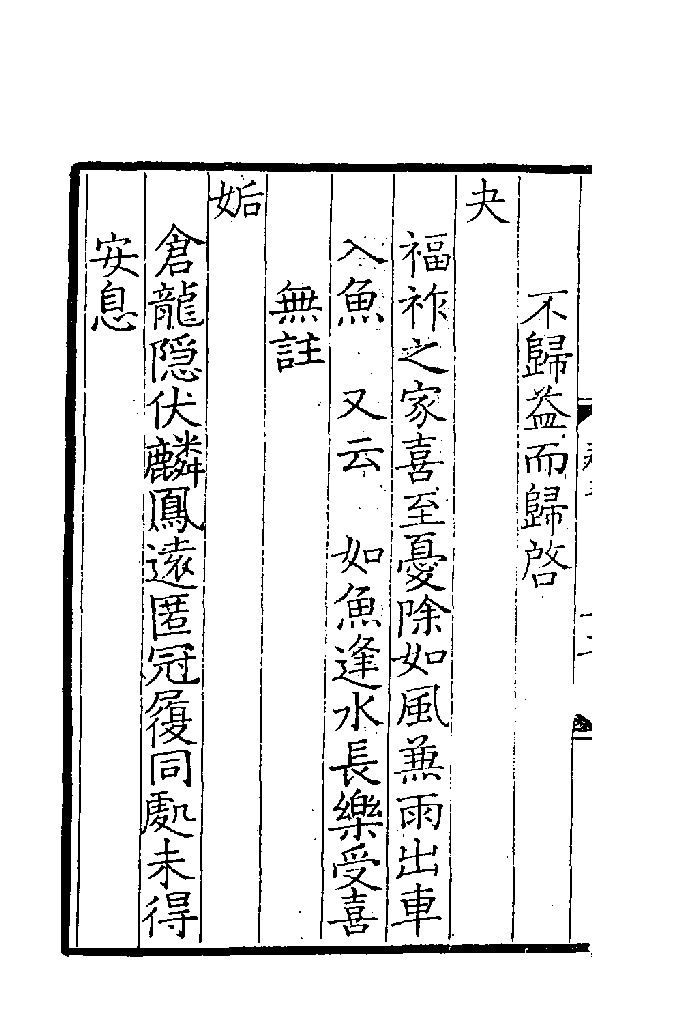 不歸益而歸啓
夬
福祚之家喜至憂除如風兼雨出車
入魚　又云　如魚逢水長樂受喜
無註
姤
倉龍隐伏麟鳳遠匿冠履同處未得
安息